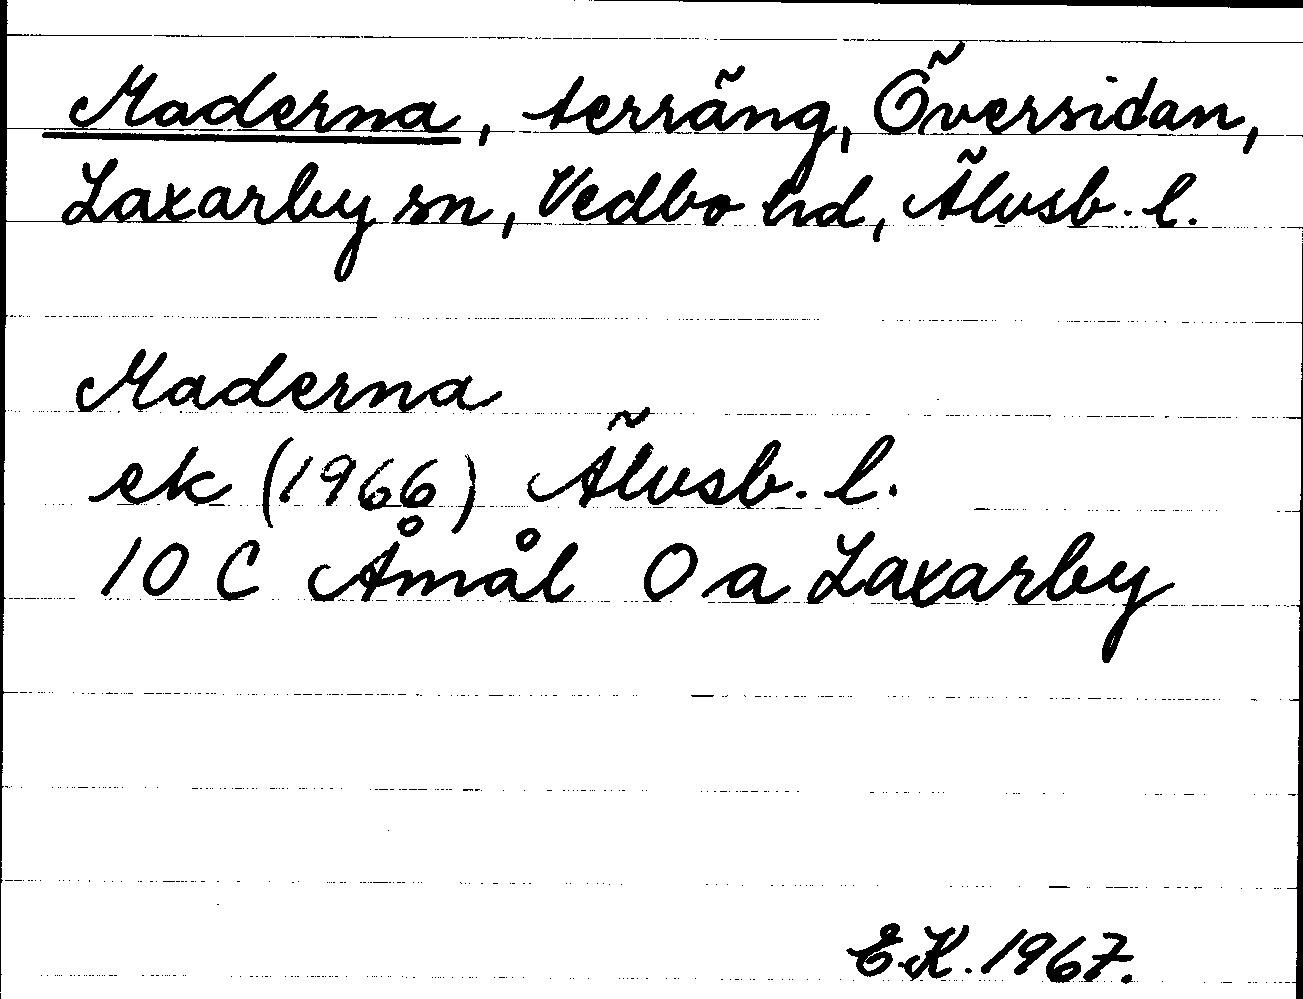 Maderna, terräng, Översidan,
Laxarby sn, Vedbo hd, Älvsb. l.
Maderna
ek (1966) Älvsb. l.
10 C Åmål 0 a Laxarby
E.K. 1967.